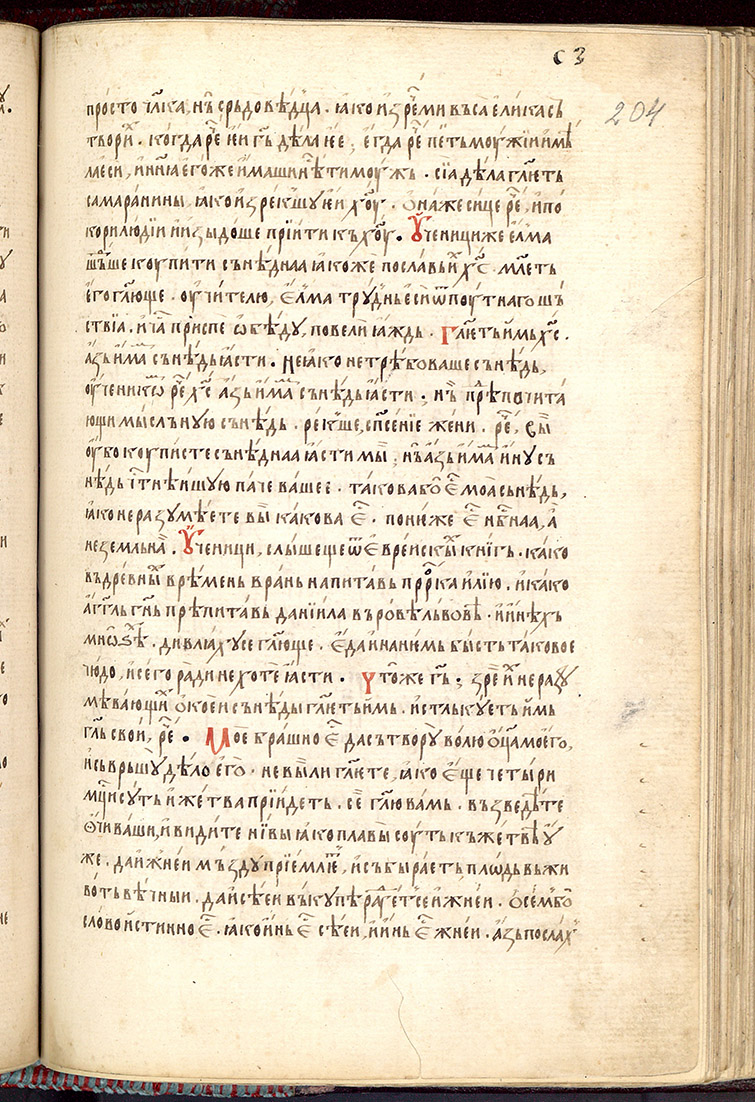 с҃з
204
просто чл҃ка, нѫ срьдовѣдца. ꙗко изрⷱ҇еми въсѧ елика сь
твори́хⷯ. когда рⷱ҇е еи гь҃ дѣла ее; егда рⷱ҇е пѧть мꙋжіи имѣ
ла еси, и нн҃ꙗ егоже имаши нѣⷭ҇ ти мꙋжь. сіа дѣла гл҃еть
самаранины, ꙗко изрекшꙋ еи хⷭ҇ꙋ. она же сице рⷱ҇е, и по
кори люⷣіи и изыдоше прїити къ хⷭ҇ꙋ. Оу҆ченици же елма
шьⷣше кꙋпити сънѣднаа ꙗкоже посла вьи хⷭ҇ь. мл҃еть
его гл҃юще. оучителю, елма трꙋднь еси ѿ пꙋтнаго шь
ствіа. и чаⷭ҇ приспе ѡбѣдꙋ, повели ꙗждь. Гл҃еть имь хⷭ҇.
азь имаⷨ сънѣдь ꙗсти. не ꙗко не трѣбоваше сънѣдь,
оученикѡⷨ рⷱ҇е хⷭ҇ азь имаⷨ сънѣдь ꙗсти; нь прѣпочита
ющи мысльнꙋю сънѣдь. рекше, спс҃еніе жени. рⷱ҇е, вы
оубо кꙋписте сънѣднаа ꙗсти мы; нь азь имаⷨ инꙋ съ
нѣдь чⷭ҇тнѣишꙋю паче вашее. такова бо еⷭ҇ моа сънѣдь,
ꙗко не разꙋмѣете вы какова еⷭ҇. понѥже еⷭ҇ нб҃наа, а
не земльнаа. Оу҆ченици, слышеще ѿ еврейскыⷯ книгь. како
въ древныⷯ врѣмень врань напитавь прⷪ҇рка илїю. и како
агг҃ль гн҃ь прѣпитавь данїила въ ровѣ львовѣ. и инѣхь
мнѡзѣⷯ. дивлꙗхꙋсе гл҃юще. еда и на нѥмь бысть таковое
чюдо, и сего ради не хоте ꙗсти. Что же гь҃; зрⷺ и неразꙋ
мѣвающиⷯ о коеи сънѣды гл҃еть имь. истлькꙋеть имь
гл҃ь свои, рⷱ҇е. Мое брашно еⷭ҇ да сътворꙋ волю оц҃а моего,
и сьврьшꙋ дѣло его. не вы ли гл҃ете, ꙗко еще четыри
мц҃и сꙋть и жетва прїидеть. се гл҃ю вамь. възведѣте
ѻчи ваши, и видите нивы ꙗко плавы сꙋть къ жетвѣ ꙋ
же. да и жнѣи мъздꙋ прїемлⷮе, и събыраеть плѡдь вь жи
воть вѣчныи. да и сѣеи въкꙋпѣ раⷣꙋетсе и жнѣи. о семь бо
слово истинно еⷭ҇. ꙗко инь еⷭ҇ сѣеи, и инь еⷭ҇ жнѣи. азь послаⷯ